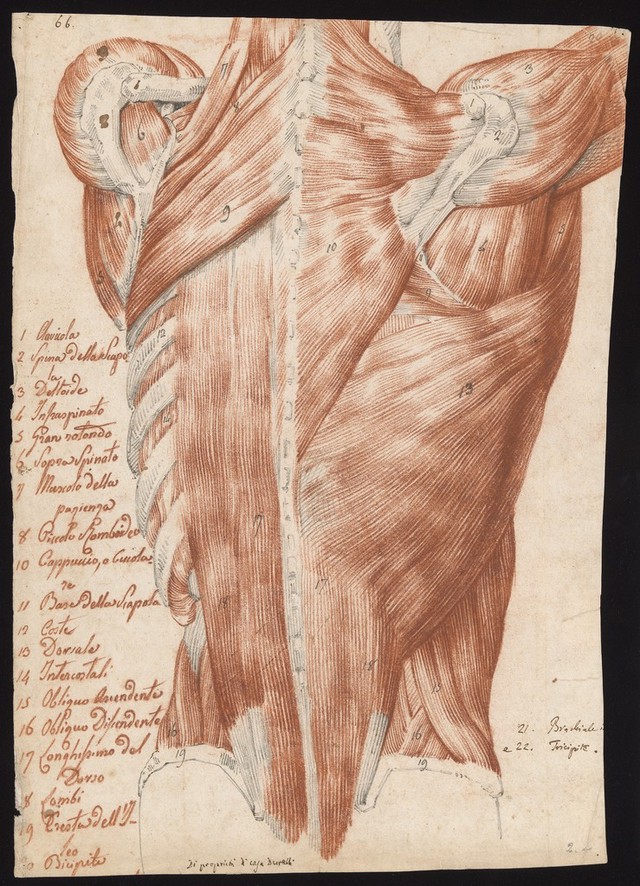 66.
1 Clavicola
2 Spina della Scapo
la
3 Deltoide
4 Infraspinato
5 Gran rotondo
6 Sopra Spinato
7 Muscolo della
pazienza
8 Piccolo Romboideo
10 Cappuccio, o Cucola
re
11 Base della Scapola
12 Coste
13 Dorsale
14 Intercostali
15 Obliquo Ascendente
16 Obliquo Disendente
17 Longhissimo del
Dorso
18 Lombi
19 Cresta dell'I-
leo
20 Bicipite
21. Brachiale
e 22. Tricipite.
Di proprietà di casa